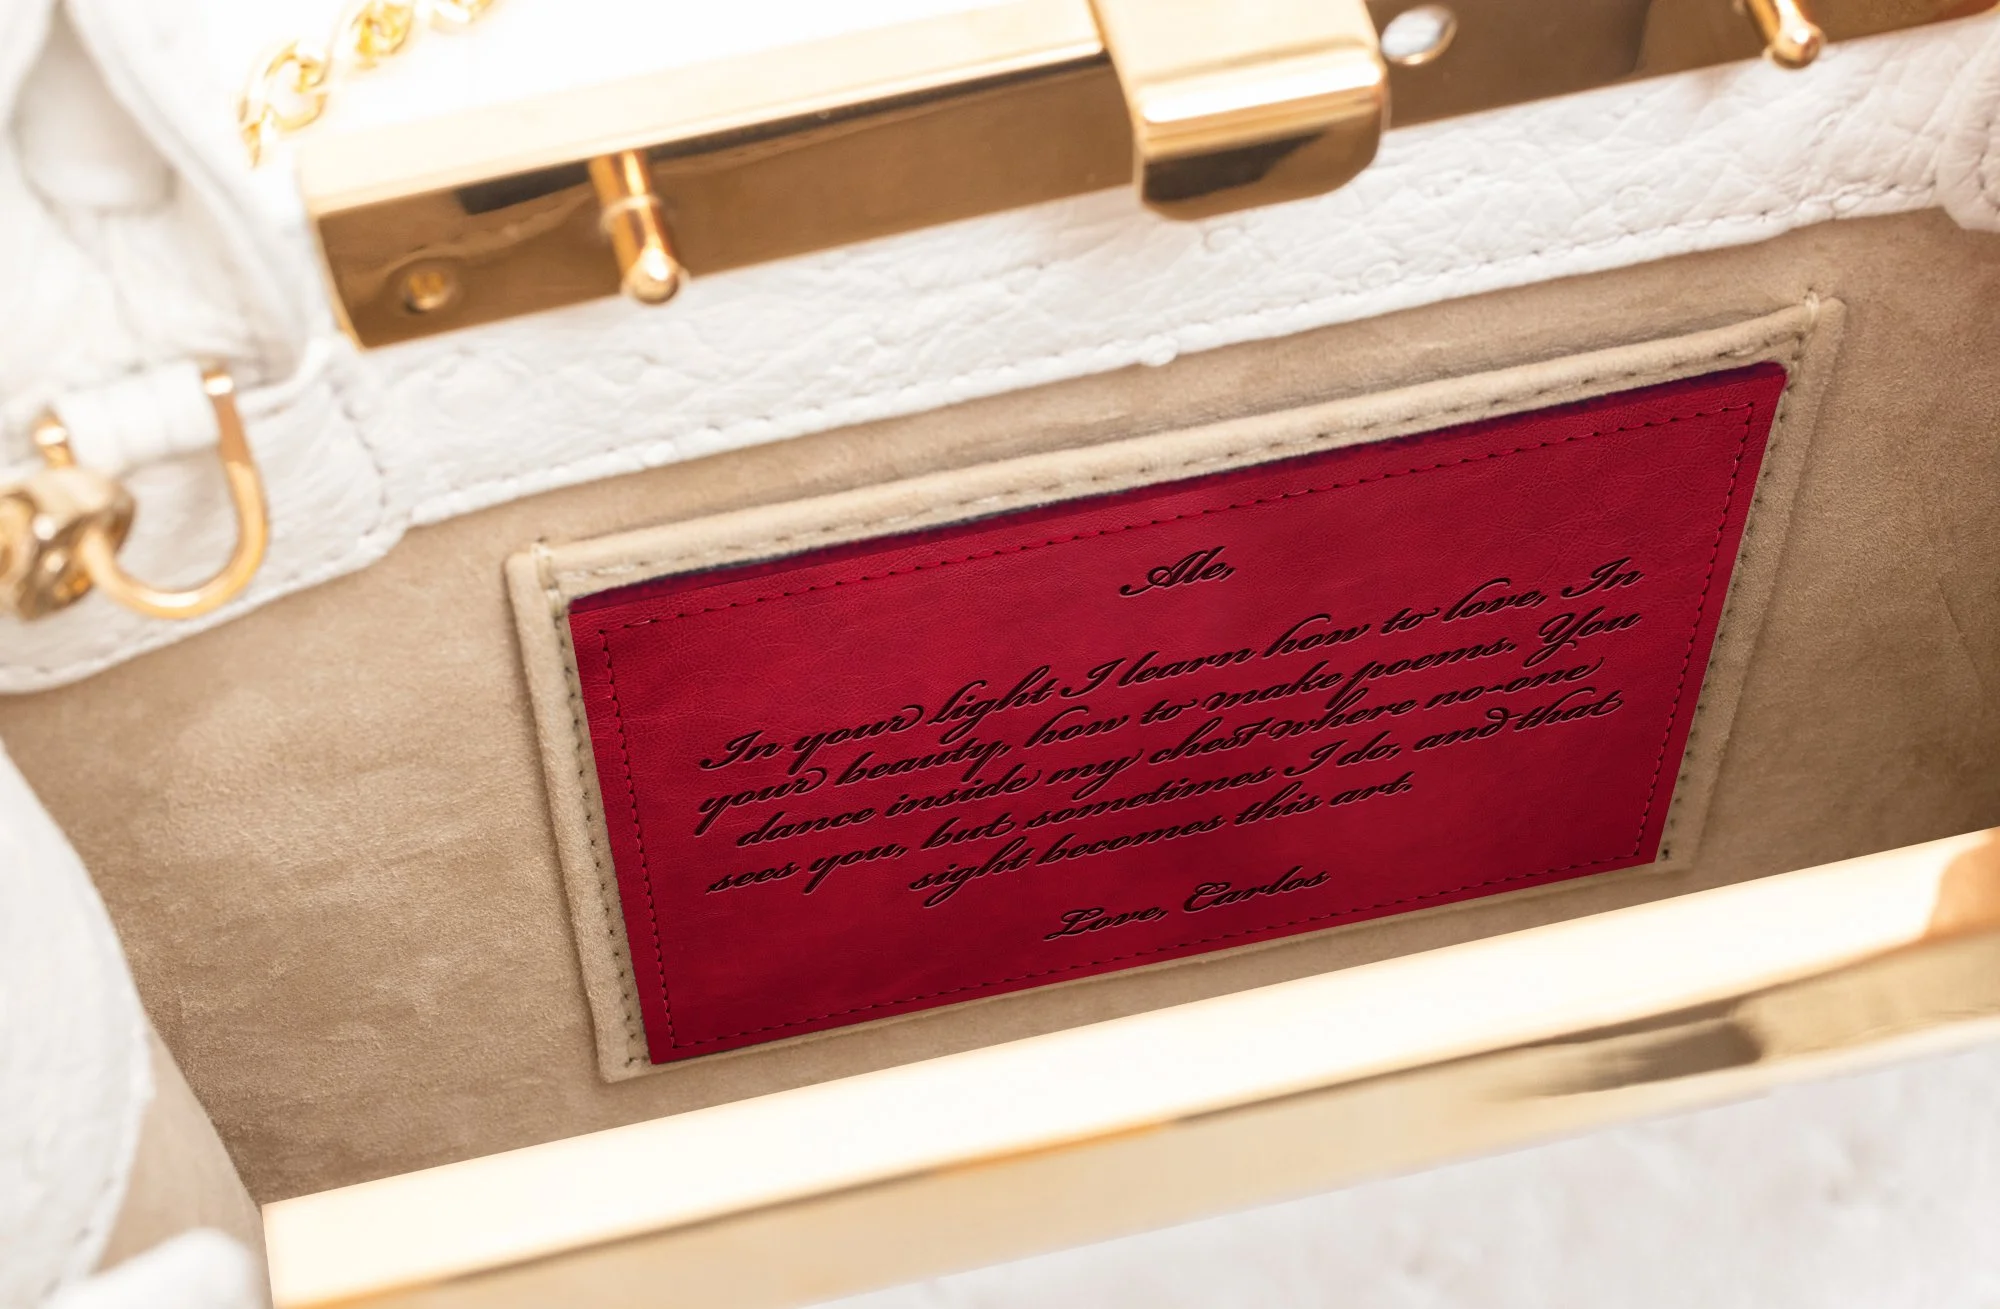 Ale,
In your light I learn how to love, In
your beauty, how to make poems. You
dance inside my chest where no-one
sees you, but sometimes I do, and that
sight becomes this art.
Love, Carlos